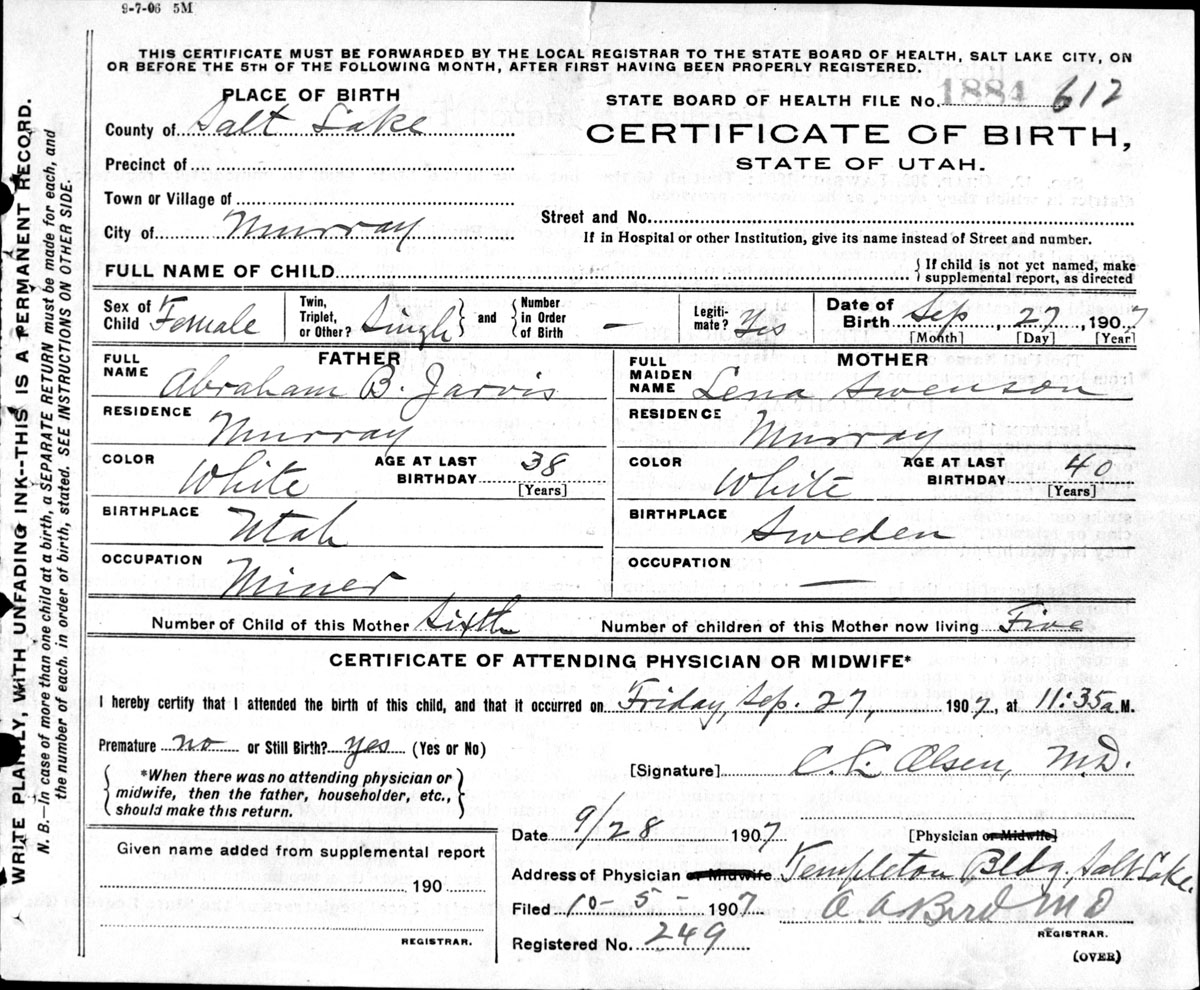 9-7-06 5M
THIS CERTIFICATE MUST BE FORWARDED BY THE LOCAL REGISTRAR TO THE STATE BOARD OF HEALTH, SALT LAKE CITY, ON
OR BEFORE THE 5TH OF THE FOLLOWING MONTH, AFTER FIRST HAVING BEEN PROPERLY REGISTERED.
PLACE OF BIRTH
County of Salt Lake
Precinct of
Town or Village of
City of Murray
STATE BOARD OF HEALTH FILE NO. 1884 612
CERTIFICATE OF BIRTH,
STATE OF UTAH.
Street and No.
If in Hospital or other Institution, give its name instead of Street and number.
FULL NAME OF CHILD
If child is not yet named, make
supplemental report, as directed
Sex of Child Female
Twin, Triplet, or Other? Single
and
Number in Order of Birth —
Legiti- mate? Yes
Date of Birth Sep, 27, 1907
[Month] [Day] [Year]
FATHER
FULL NAME Abraham B. Jarvis
RESIDENCE Murray
COLOR White
AGE AT LAST BIRTHDAY 38
[Years]
BIRTHPLACE Utah
OCCUPATION Miner
MOTHER
FULL MAIDEN NAME Lena Swenson
RESIDENCE Murray
COLOR White
AGE AT LAST BIRTHDAY 40
[Years]
BIRTHPLACE Sweden
OCCUPATION —
Number of Child of this Mother Sixth
Number of children of this Mother now living Five
CERTIFICATE OF ATTENDING PHYSICIAN OR MIDWIFE*
I hereby certify that I attended the birth of this child, and that it occurred on Friday, Sep. 27, 1907, at 11:35 a M.
Premature no or Still Birth? yes (Yes or No)
*When there was no attending physician or
midwife, then the father, householder, etc.,
should make this return.
[Signature] Olsen, M.D.
Date 9/28 1907 [Physician or Midwife]
Address of Physician or Midwife Templeton Bldg, Salt Lake
Filed 10-5- 1907
Bird M D
REGISTRAR.
Registered No. 249
(OVER)
Given name added from supplemental report
190
REGISTRAR.
WRITE PLAINLY, WITH UNFADING INK--THIS IS A PERMANENT RECORD.
N. B.—In case of more than one child at a birth, a SEPARATE RETURN must be made for each, and
the number of each, in order of birth, stated. SEE INSTRUCTIONS ON OTHER SIDE.